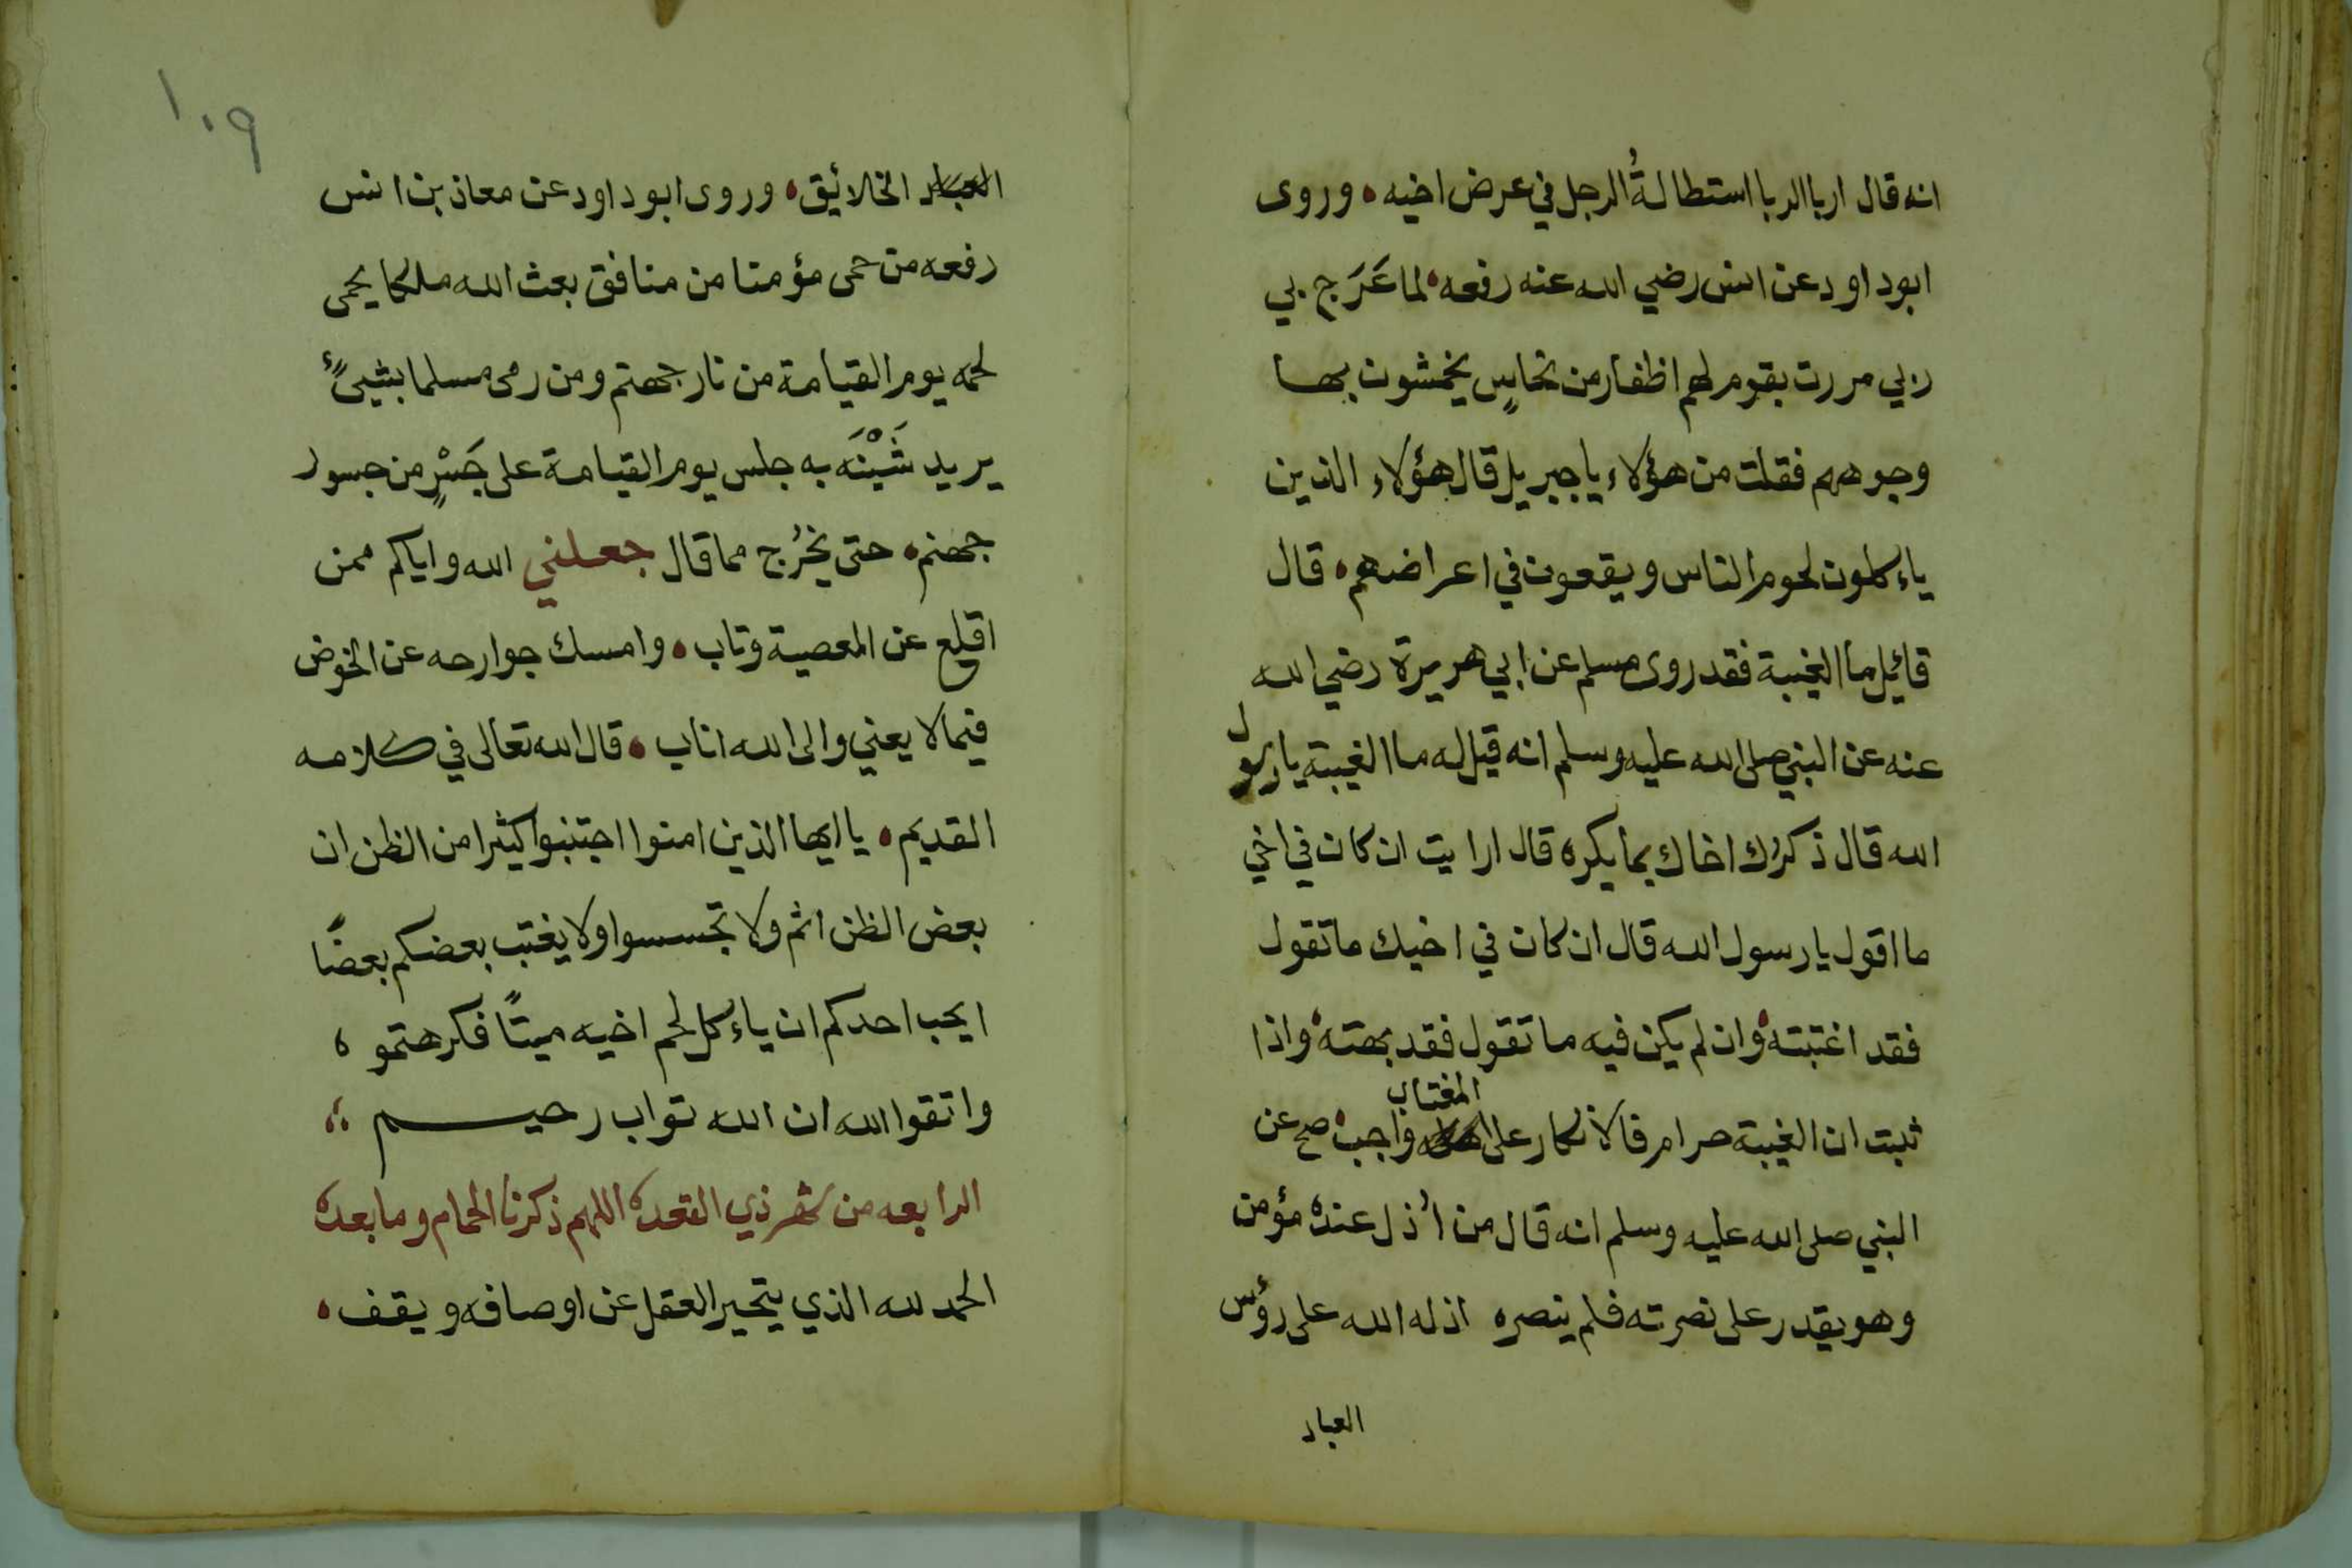 انه قال اربا الربا استطالةُ الرجل في عرض اخيه ، وروى
ابوداود عن انس رضي الله عنه رفعه ، لما عَرَج بي
ربي مررت بقوم لهم اظفار من نحاسٍ يخمشون بها
وجوههم فقلت من هؤلاء ياجبريل قال هؤلاء الذين
ياءكلون لحوم الناس ويقعون في اعراضهم ، قال
قائيل ما الغيبة فقد روى مسلم عن ابي هريرة رضي الله
عنه عن النبي صلى الله عليه وسلم انه قيل له ما الغيبة يارسول
الله قال ذكرك اخاك بما يكره قال ارايت ان كان في اخي
ما اقول يارسول الله قال ان كان في اخيك ماتقول
فقد اغتبته ، وان لم يكن فيه ماتقول فقد بهته ، واذا
ثبت ان الغيبة حرام فالانكار على المغتاب واجب ، صح عن
النبي صلى الله عليه وسلم انه قال من اُذل عنده مؤمن
وهو يقدر على نصرته فلم ينصره اذله الله على رؤس
العباد
١٠٩
العباد الخلائيق ، وروى ابوداود عن معاذ بن انس
رفعه من حمى مؤمنا من منافق بعث الله ملكا يحمى
لحمه يوم القيامة من نار جهنم ومن رمى مسلما بشيىءٍ
يريد شَيْنَه به جلس يوم القيامة على جَسْرٍ من جسور
جهنم ، حتى يخرُج مما قال جعلني الله واياكم ممن
اقلع عن المعصية وتاب ، وامسك جوارحه عن الخوض
فيما لا يعني والى الله اناب ، قال الله تعالى في كلامه
القديم ، يا ايها الذين امنوا اجتنبوا كثيرا من الظن ان
بعض الظن اثم ولا تجسسوا ولا يغتب بعضكم بعضًا
ايحب احدكم ان ياءكل لحم اخيه ميتًا فكرهتموه
واتقوا الله ان الله تواب رحيم
الرابعه من شهر ذي القعده اللهم ذكرنا الحمام وما بعده
الحمد لله الذي يتحير العقل عن اوصافه ويقف ،